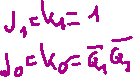 J₁ = K₁ = 1
J₀ = K₀ = Q̅₁ Q̅₁